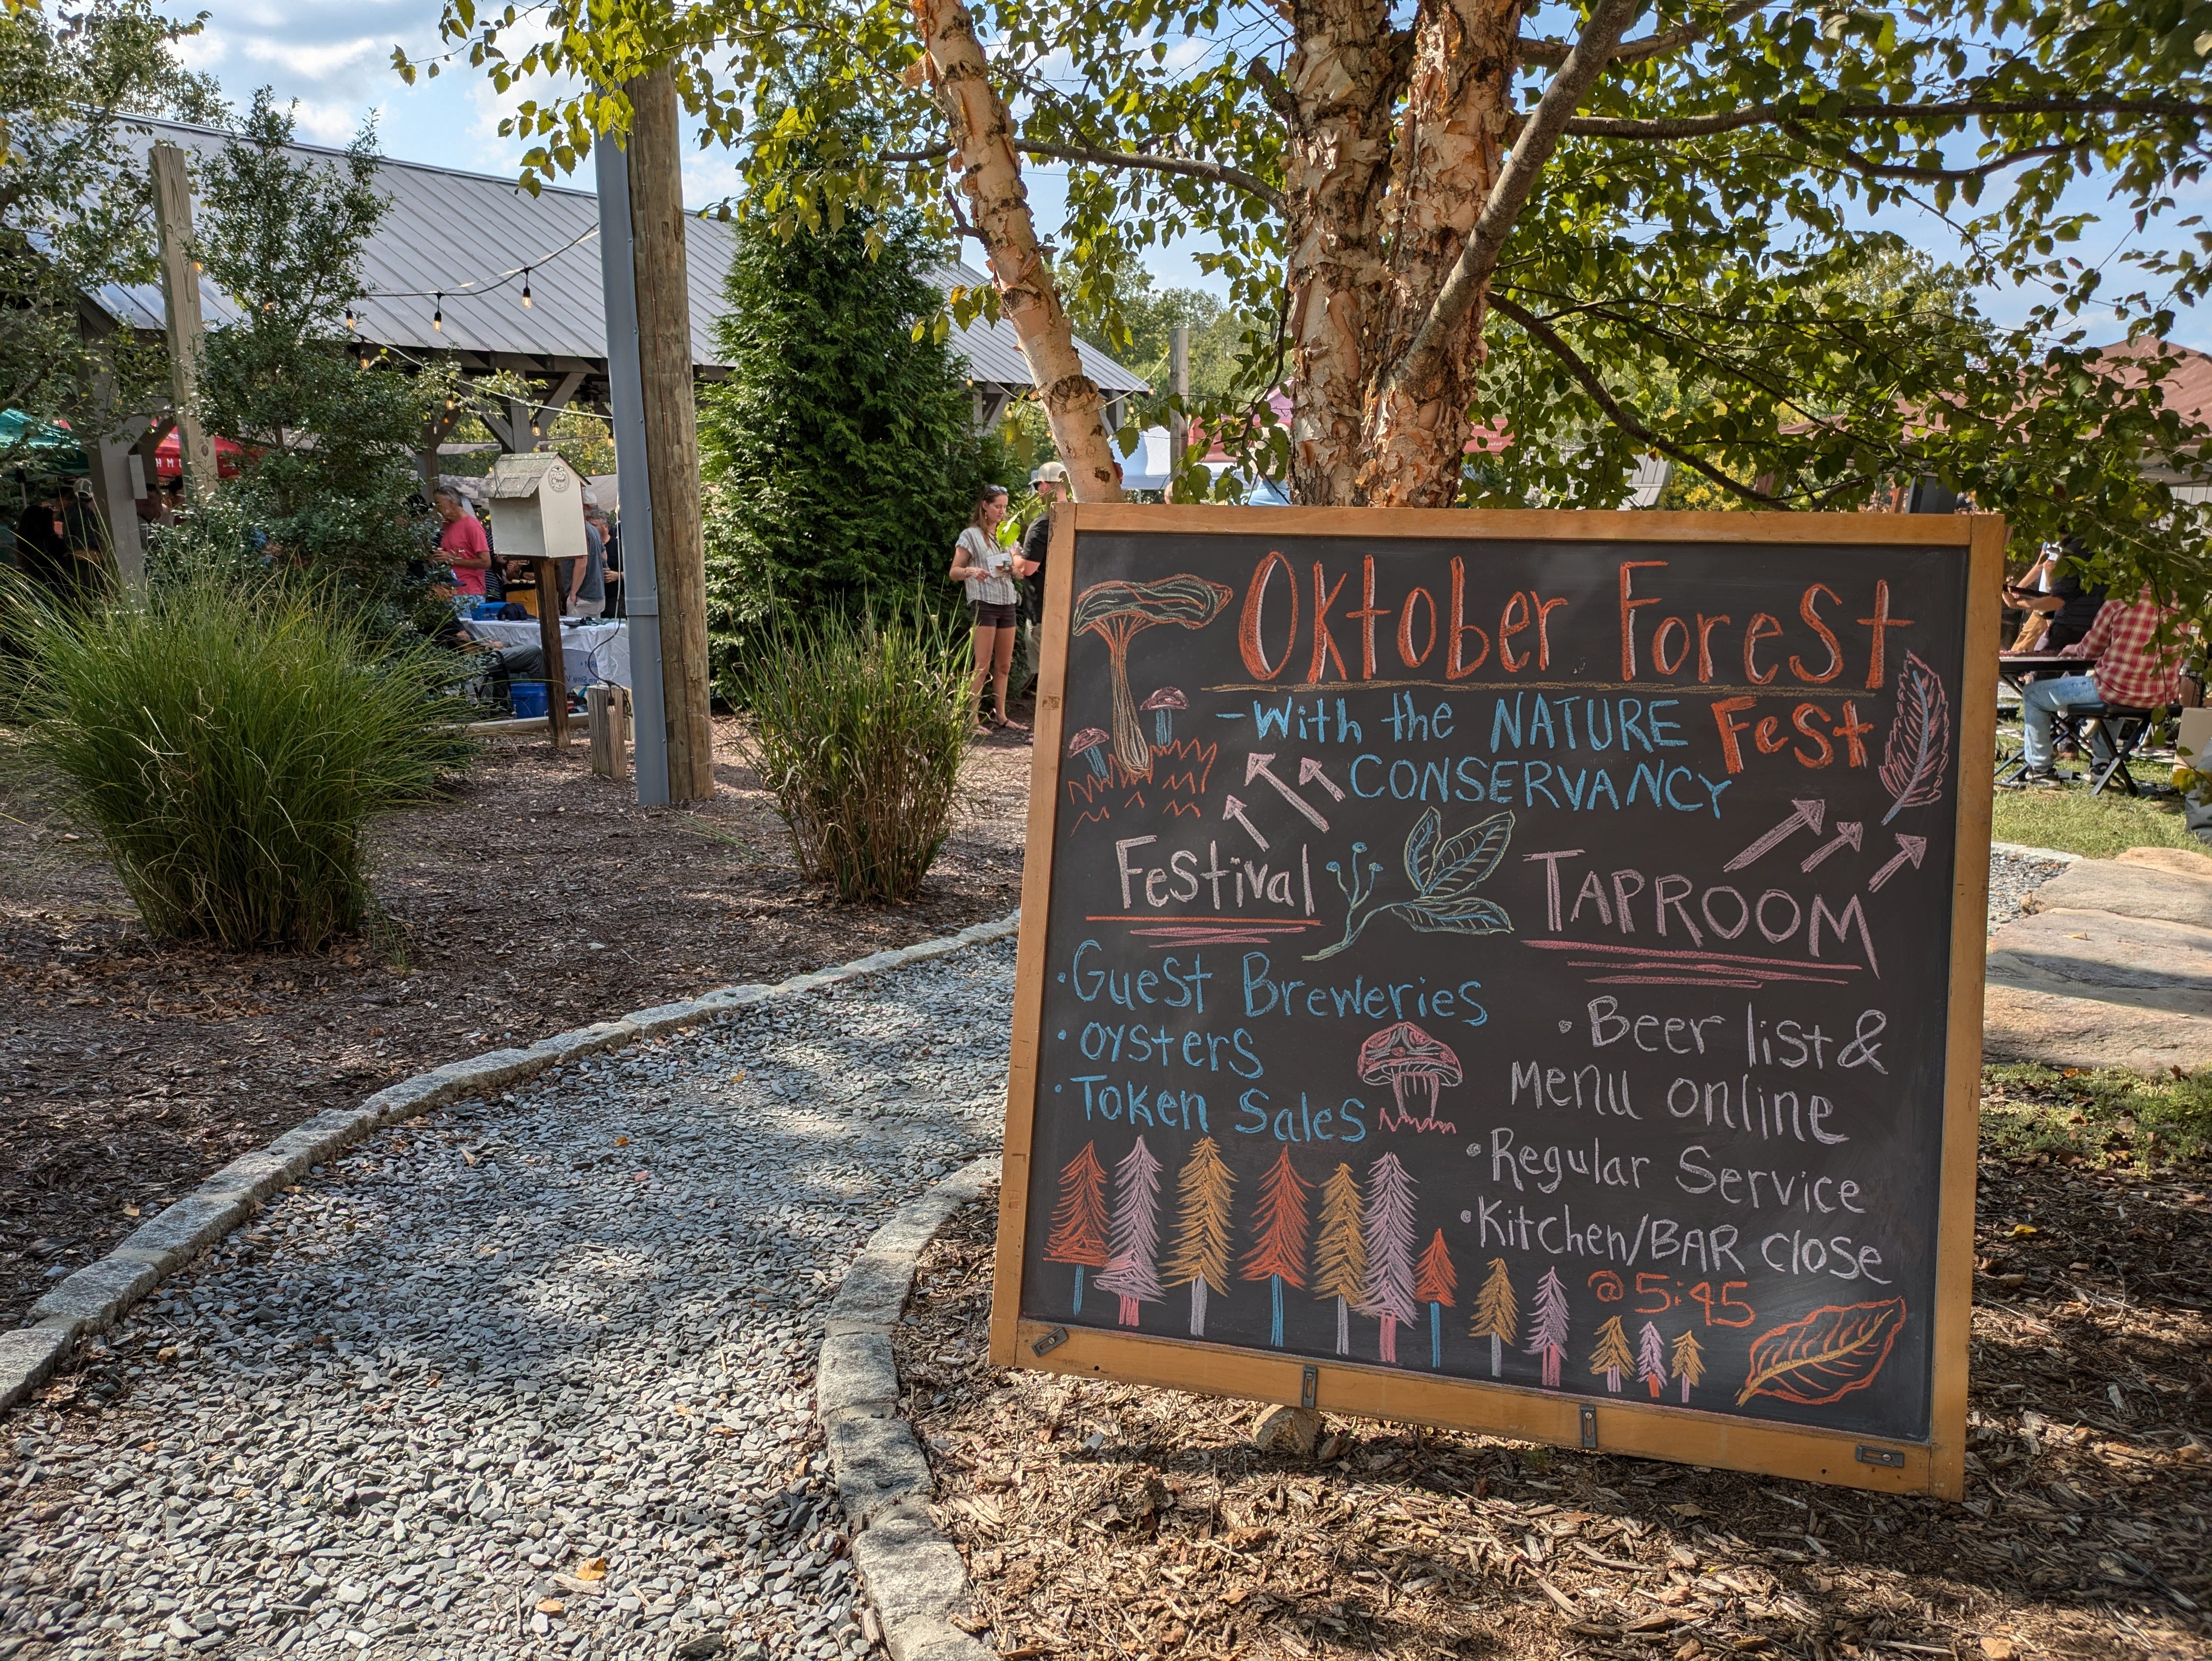 Oktober Forest
-with the NATURE Fest
CONSERVANCY
Festival
• Guest Breweries
• Oysters
• Token Sales
TAPROOM
• Beer list &
Menu online
• Regular Service
• Kitchen/BAR close
@ 5:45